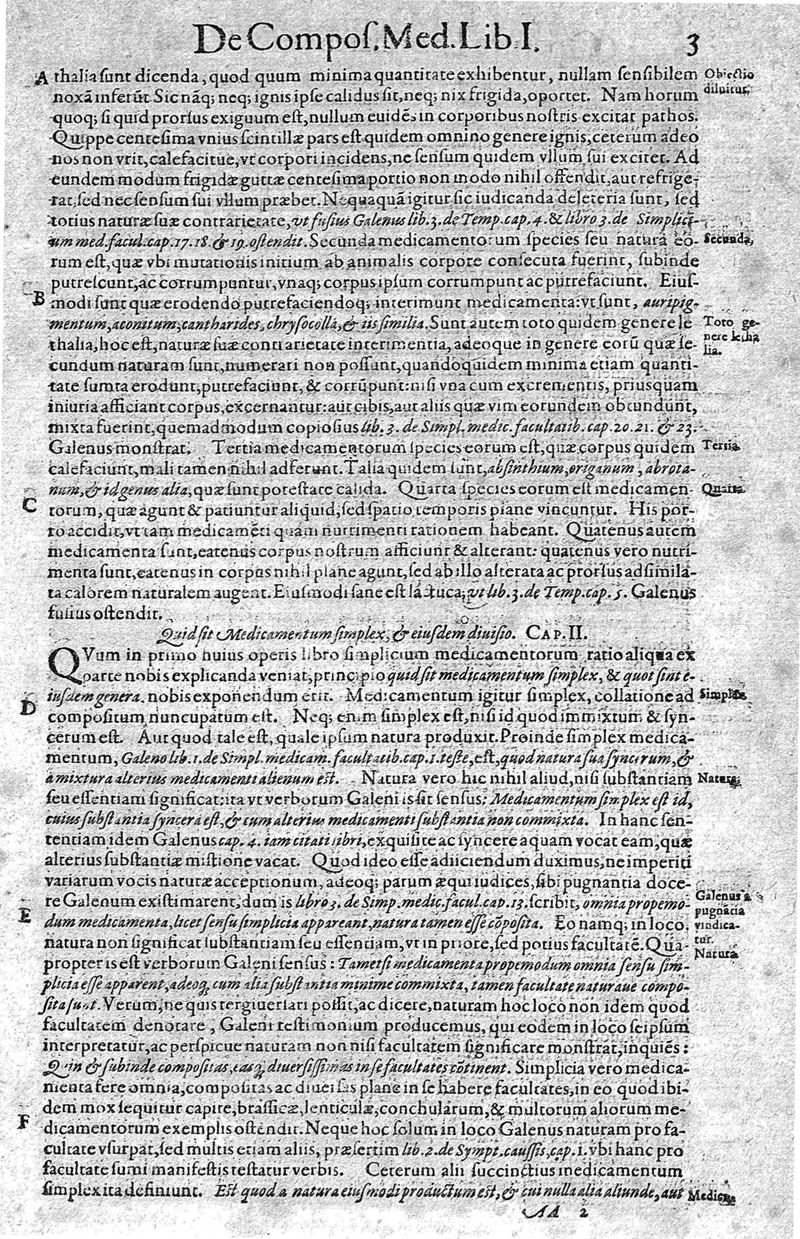 De Compos. Med. Lib. I. 3
A thalia sunt dicenda, quod quum minima quantitate exhibentur, nullam sensibilem
noxā inferūt Sic nāq; neq; ignis ipse calidus sit, neq; nix frigida, oportet. Nam horum
quoq; si quid prorsus exiguum est, nullum euidēs in corporibus nostris excitat pathos.
Quippe centesima vnius scintillæ pars est quidem omnino genere ignis, ceterum adeo
nos non vrit, calefacitue, vt corpori incidens, ne sensum quidem vllum sui excitet. Ad
eundem modum frigidæ guttæ centesima portio non modo nihil offendit, aut refrige-
rat, sed nec sensum sui vllum præbet. Nequaquā igitur sic iudicanda deleteria sunt, sed
totius naturæ suæ contrarietate, vt fusius Galenus lib. 3. de Temp. cap. 4. & libro 3. de Simplici-
um med. facul. cap. 17. 18. & 19. ostendit. Secunda medicamentorum species seu natura eo-
rum est, quæ vbi mutationis initium ab animalis corpore consecuta fuerint, subinde
putrescunt, ac corrumpuntur, vnaq; corpus ipsum corrumpunt ac putrefaciunt. Eius-
B modi sunt quæ erodendo putrefaciendoq; interimunt medicamenta: vt sunt, auripig-
mentum, aconitum, cantharides, chrysocolla, & iis similia. Sunt autem toto quidem genere le
thalia, hoc est, naturæ suæ contrarietate interimentia, adeoque in genere eorū quæ se-
cundum naturam sunt, numerari non possunt, quandoquidem minima etiam quanti-
tate sumta erodunt, putrefaciunt, & corrūpunt: nisi vna cum excrementis, priusquam
iniuria afficiant corpus, excernantur: aut cibis, aut aliis quæ vim eorundem obtundunt,
mixta fuerint, quemadmodum copiosius lib. 3. de Simpl. medic. facultatib. cap. 20. 21. & 23.
Galenus monstrat. Tertia medicamentorum species eorum est, quæ corpus quidem
calefaciunt, mali tamen nihil adferunt. Talia quidem sunt, absinthium, origanum, abrota-
num, & id genus alia, quæ sunt potestate calida. Quarta species eorum est medicamen-
C torum, quæ agunt & patiuntur aliquid, sed spatio temporis plane vincuntur. His por-
ro accidit, vt tam medicamēti quam nutrimenti rationem habeant. Quatenus autem
medicamenta sunt, eatenus corpus nostrum afficiunt & alterant: quatenus vero nutri-
menta sunt, eatenus in corpus nihil plane agunt, sed ab illo alterata ac prorsus adsimila-
ta calorem naturalem augent. Eiusmodi sane est lactuca, vt lib. 3. de Temp. cap. 5. Galenus
fusius ostendit.
Quid sit Medicamentum simplex, & eiusdem diuisio. CAP. II.
QVum in primo huius operis libro simplicium medicamentorum ratio aliqua ex
parte nobis explicanda veniat, principio quid sit medicamentum simplex, & quot sint e-
iusdem genera, nobis exponendum erit. Medicamentum igitur simplex, collatione ad
D compositum nuncupatum est. Neq; enim simplex est, nisi id quod immixtum & syn-
cerum est. Aut quod tale est, quale ipsum natura produxit. Proinde simplex medica-
mentum, Galeno lib. 1. de Simpl. medicam. facultatib. cap. 1. teste, est, quod natura sua syncerum, &
a mixtura alterius medicamenti alienum est. Natura vero hic nihil aliud, nisi substantiam
seu essentiam significat: ita vt verborum Galeni is sit sensus: Medicamentum simplex est id,
cuius substantia syncera est, & cum alterius medicamenti substantia non commixta. In hanc sen-
tentiam idem Galenus cap. 4. iam citati libri, exquisite ac syncere aquam vocat eam, quæ
alterius substantiæ mistione vacat. Quod ideo esse adiiciendum duximus, ne imperiti
variarum vocis naturæ acceptionum, adeoq; parum æqui iudices, sibi pugnantia doce-
re Galenum existimarent, dum is libro 3. de Simp. med. fac. cap. 13. scribit, omnia propemo-
E dum medicamenta, licet sensu simplicia appareant, natura tamen esse cōposita. Eo namq; in loco,
natura non significat substantiam seu essentiam, vt in priore, sed potius facultatē. Qua-
propter is est verborum Galeni sensus: Tametsi medicamenta propemodum omnia sensu sim-
plicia esse apparent, adeoq, cum alia substantia minime commixta, tamen facultate naturaue compo-
sita sunt. Verum, ne quis tergiuersari possit, ac dicere, naturam hoc loco non idem quod
facultatem denotare, Galeni testimonium producemus, qui eodem in loco seipsum
interpretatur, ac perspicue naturam non nisi facultatem significare monstrat, inquiēs:
Quin & subinde compositas, easq, diuersissimas in se facultates cōtinent. Simplicia vero medica-
menta fere omnia, compositas ac diuersas plane in se habere facultates, in eo quod ibi-
dem mox sequitur capite, brassicæ, lenticulæ, conchularum, & multorum aliorum me-
F dicamentorum exemplis ostendit. Neque hoc solum in loco Galenus naturam pro fa-
cultate vsurpat, sed multis etiam aliis, præsertim lib. 2. de Sympt. caussis, cap. 1. vbi hanc pro
facultate sumi manifestis testatur verbis. Ceterum alii succinctius medicamentum
simplex ita definiunt. Est quod a natura eiusmodi productum est, & cui nulla alia aliunde, aut
AA 2
Obiectio
diluitur.
Secunda,
Toto ge-
nere letha
lia.
Tertia.
Quarta.
Simplex.
Natura.
Galenus a
pugnācia
vindica-
tur.
Natura